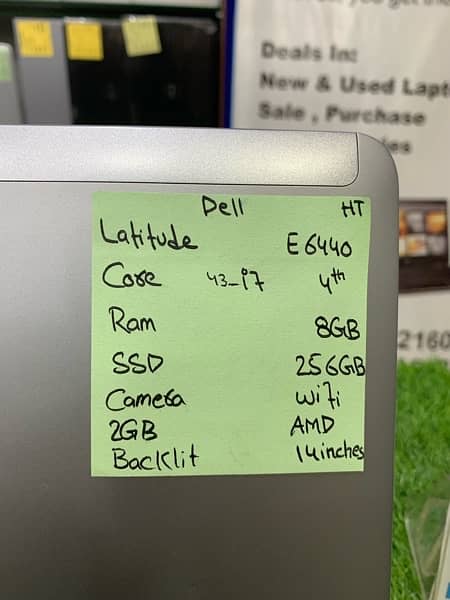 Deals In:
New & Used Lapt
Sale , Purchase
ies
2160
Dell HT
Latitude E6440
Core 43-i7 4th
Ram 8GB
SSD 256GB
Camera Wifi
2GB AMD
Backlit 14inches